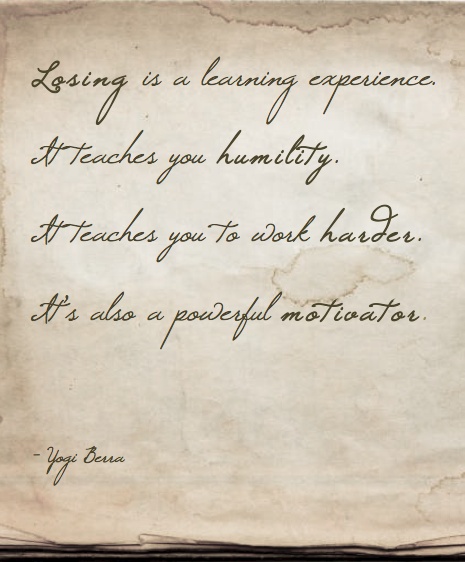 Losing is a learning experience.
It teaches you humility.
It teaches you to work harder.
It's also a powerful motivator.
- Yogi Berra